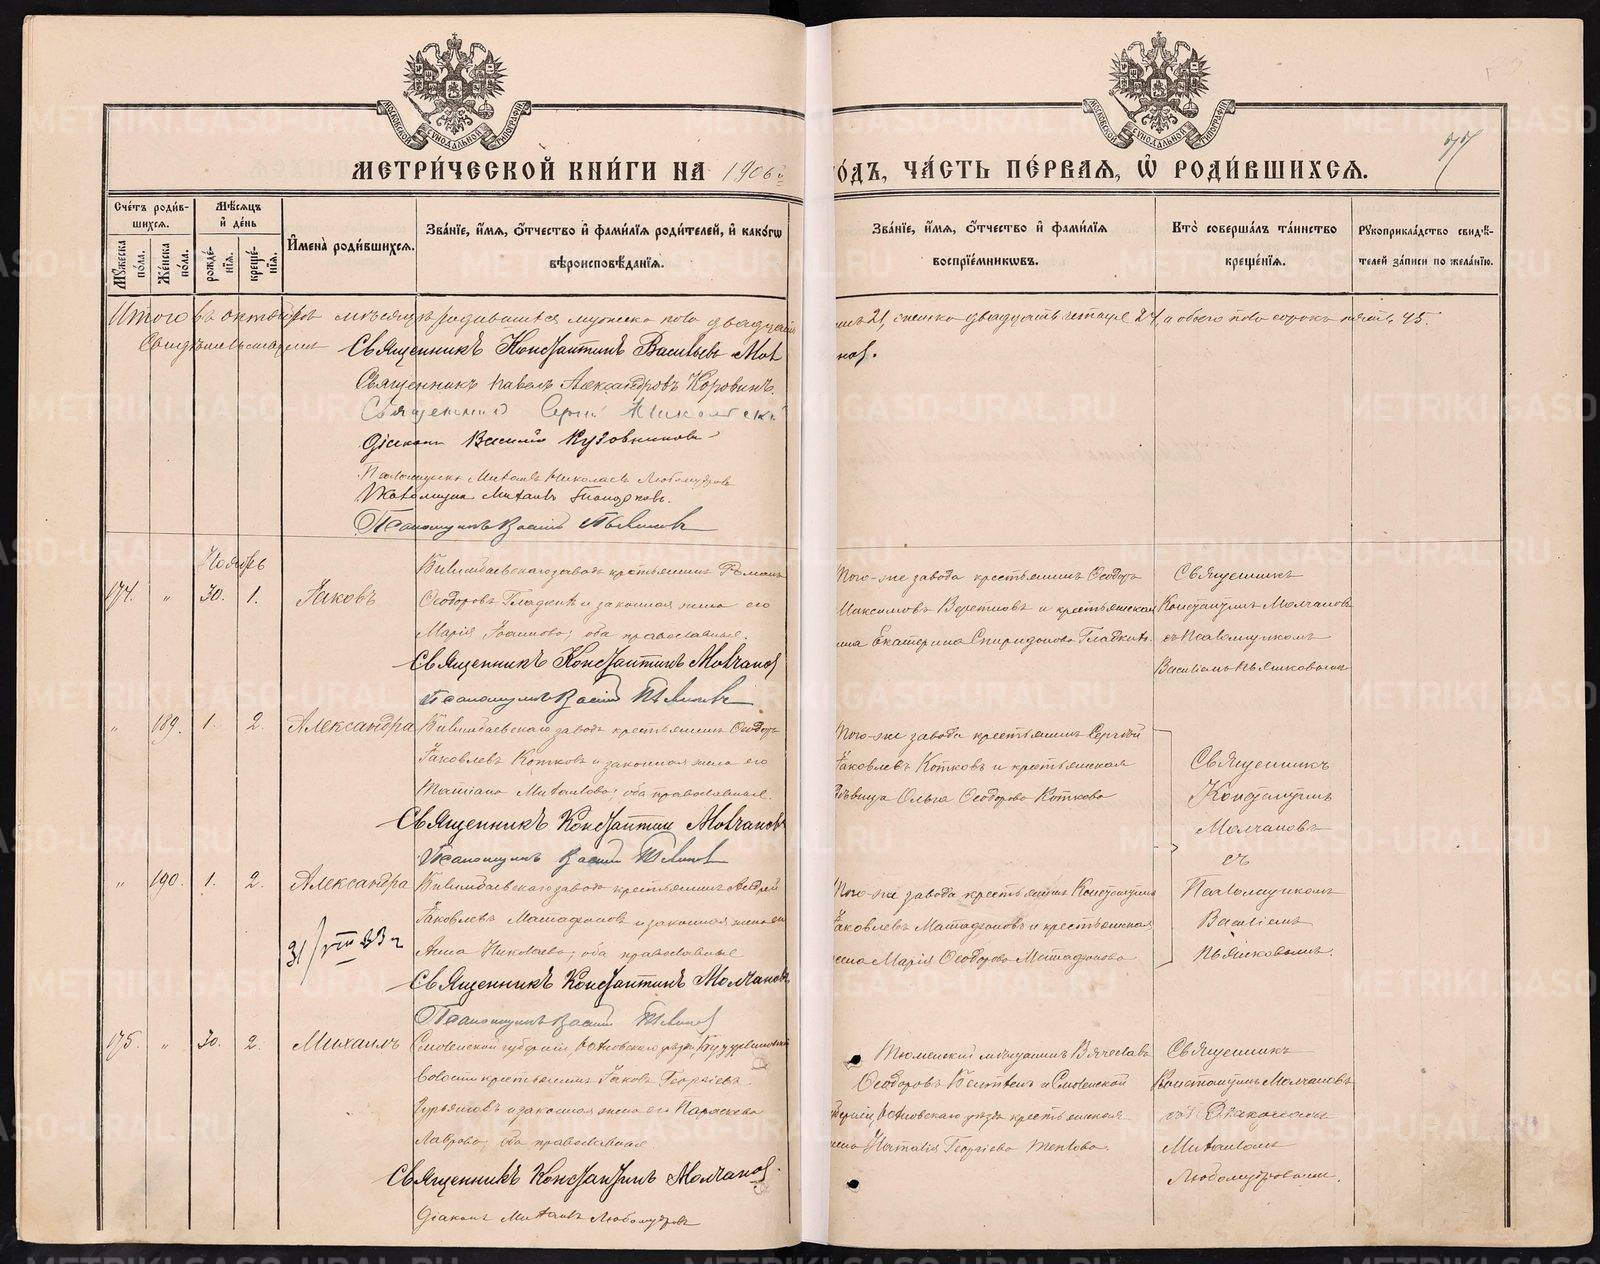 МЕТРИЧЕСКОЙ КНИГИ НА 1906й
ГОДЪ, ЧАСТЬ ПЕРВАЯ, Ѡ РОДИВШИХСЯ.
77
Счетъ родившихся.
Мѣсяцъ и день
Имена родившихся.
Званіе, имя, отчество и фамилія родителей, и какогѡ вѣроисповѣданія.
Мужеска пола.
Женска пола.
рожденія.
крещенія.
Званіе, имя, отчество и фамилія воспріемникѡвъ.
Кто совершалъ таинство крещенія.
Рукоприкладство свидѣтелей записи по желанію.
Итого въ октябрѣ мѣсяцѣ родившихся мужеска пола двадцать
одинъ 21, женска двадцать четыре 24, а обоего пола сорокъ пять 45.
Священникъ Константинъ Васильевъ Мол
Священникъ Павелъ Александровъ Коровинъ
Священникъ Сергій
Діаконъ Василій Кузовниковъ
Псаломщикъ Михаилъ Николаевъ Любомудровъ
Псаломщикъ Михаилъ
Псаломщикъ Василій Пьянковъ
Ноябрь
174. " 30. 1. Іаковъ
Билимбаевскаго завода крестьянинъ Романъ
Ѳеодоровъ Гладкихъ и законная жена его
Марія Іоаннова; оба православные.
Священникъ Константинъ Молчановъ
Псаломщикъ Василій Пьянковъ
Того-же завода крестьянинъ Ѳеодоръ
Максимовъ и крестьянская
Екатерина Спиридонова Гладкихъ.
Священникъ
Константинъ Молчановъ
съ Псаломщикомъ
Василіемъ Пьянковымъ
" 189. 1. 2. Александра
Билимбаевскаго завода крестьянинъ Ѳеодоръ
Іаковлевъ Котковъ и законная жена его
Татіана Михаилова; оба православные.
Священникъ Константинъ Молчановъ
Псаломщикъ Василій Пьянковъ
Того-же завода крестьянинъ Сергѣй
Іаковлевъ Котковъ и крестьянская
дѣвица Ольга Ѳеодорова Коткова
Священникъ
Константинъ
Молчановъ
съ
Псаломщикомъ
Василіемъ
Пьянковымъ.
" 190. 1. 2. Александра
Билимбаевскаго завода крестьянинъ Андрей
Іаковлевъ Матафоновъ и законная жена его
Анна Николаева; оба православные
Священникъ Константинъ Молчановъ
Псаломщикъ Василій Пьянковъ
Того-же завода крестьянинъ Константинъ
Іаковлевъ Матафоновъ и крестьянская
жена Марія Ѳеодорова Матафонова
175. " 30. 2. Михаилъ
Смоленской губерніи, уѣзда,
волости крестьянинъ Іаковъ Георгіевъ
и законная жена его Параскева
Лаврова; оба православные
Священникъ Константинъ Молчановъ
Діаконъ Михаилъ Любомудровъ
Тюменскій мѣщанинъ Вячеславъ
Ѳеодоровъ и Смоленской
губерніи, уѣзда крестьянская
жена Наталія Георгіева
Священникъ
Константинъ Молчановъ
съ Діакономъ
Михаиломъ
Любомудровымъ.
METRIKI.GASO-URAL.RU